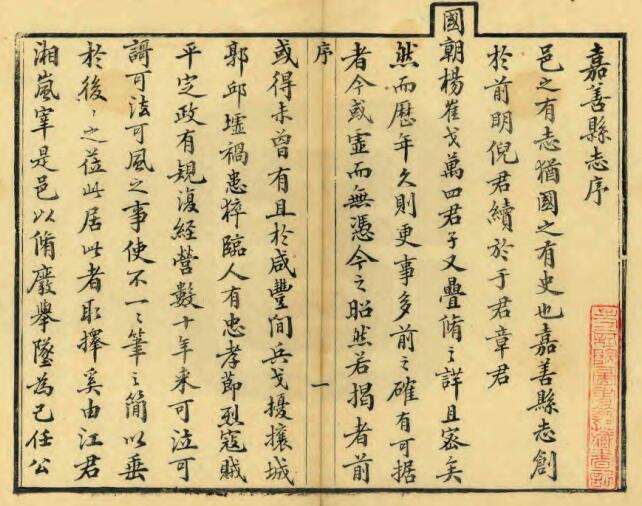 嘉善縣志序
邑之有志猶國之有史也嘉善縣志創
於前明倪君續於于君章君
國朝楊崔戈萬四君子又疊脩之詳且密矣
然而歷年久則更事多前之確有可据
者今或虛而無憑今之昭然若揭者前
序
一
或得未曾有且於咸豐間兵戈擾攘城
郭邱墟禍患猝臨人有忠孝節烈寇賊
平定政有規復經營數十年來可泣可
謌可法可風之事使不一一筆之簡以垂
於後後之莅此居此者取擇奚由江君
湘嵐宰是邑以脩廢舉墜為己任公